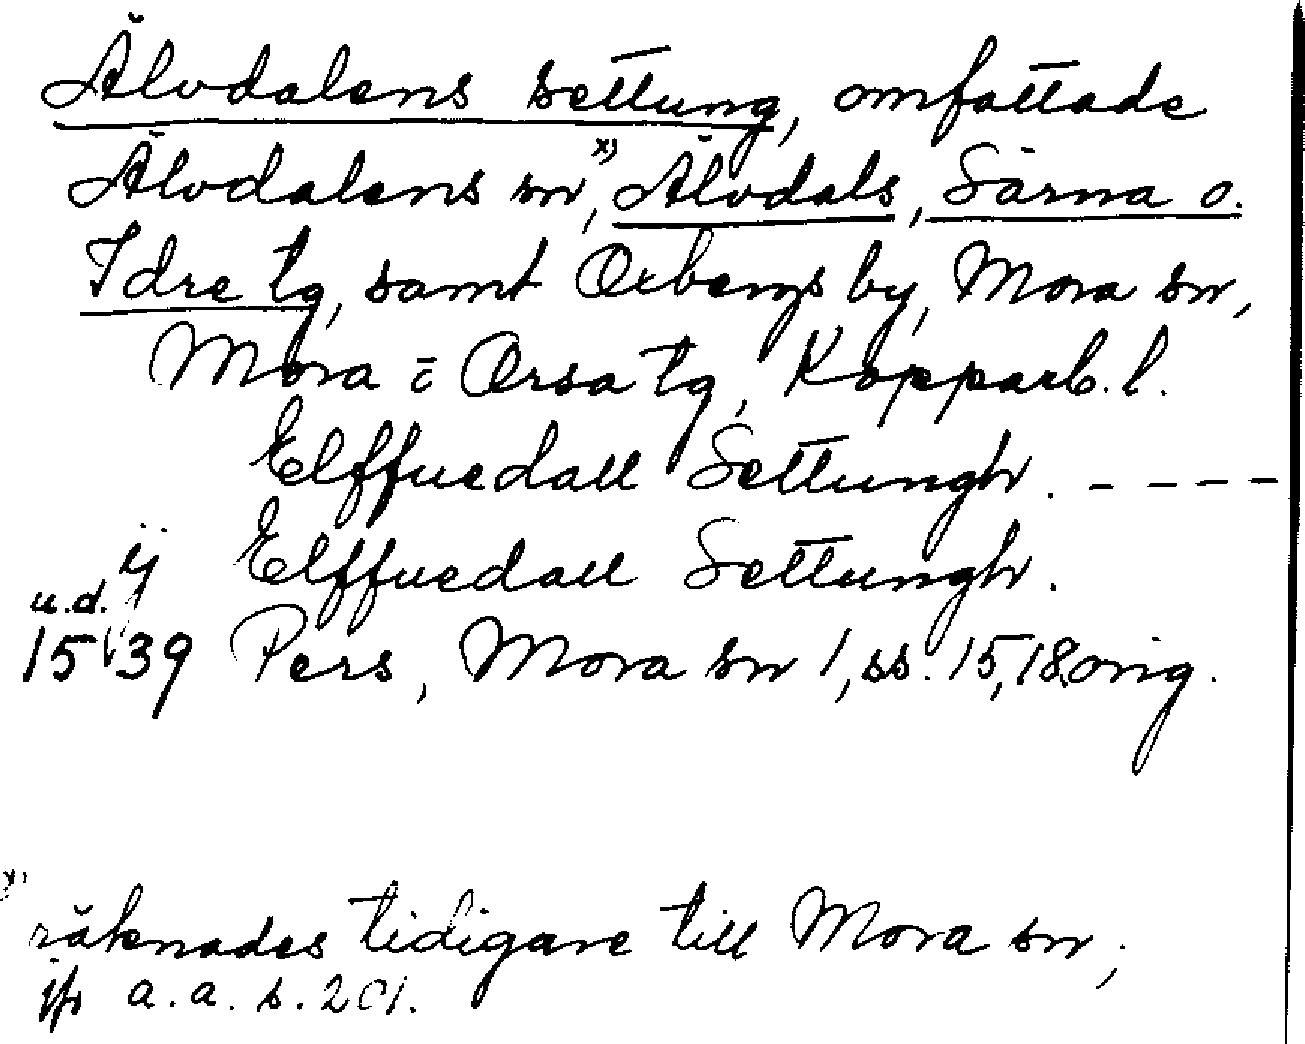 Älvdalens settung, omfattade
Älvdalens sn x), Älvdals, Särna o.
Idre tg, samt Oxbergs by, Mora sn,
Mora o Orsa tg, Kopparb. l.
Elffuedall Settungh. - - - -
ij Elffuedall Settungh.
u.d.
1539 Pers, Mora sn 1, ss. 15, 18 orig.
x) räknades tidigare till Mora sn,
jfr a.a. s. 201.